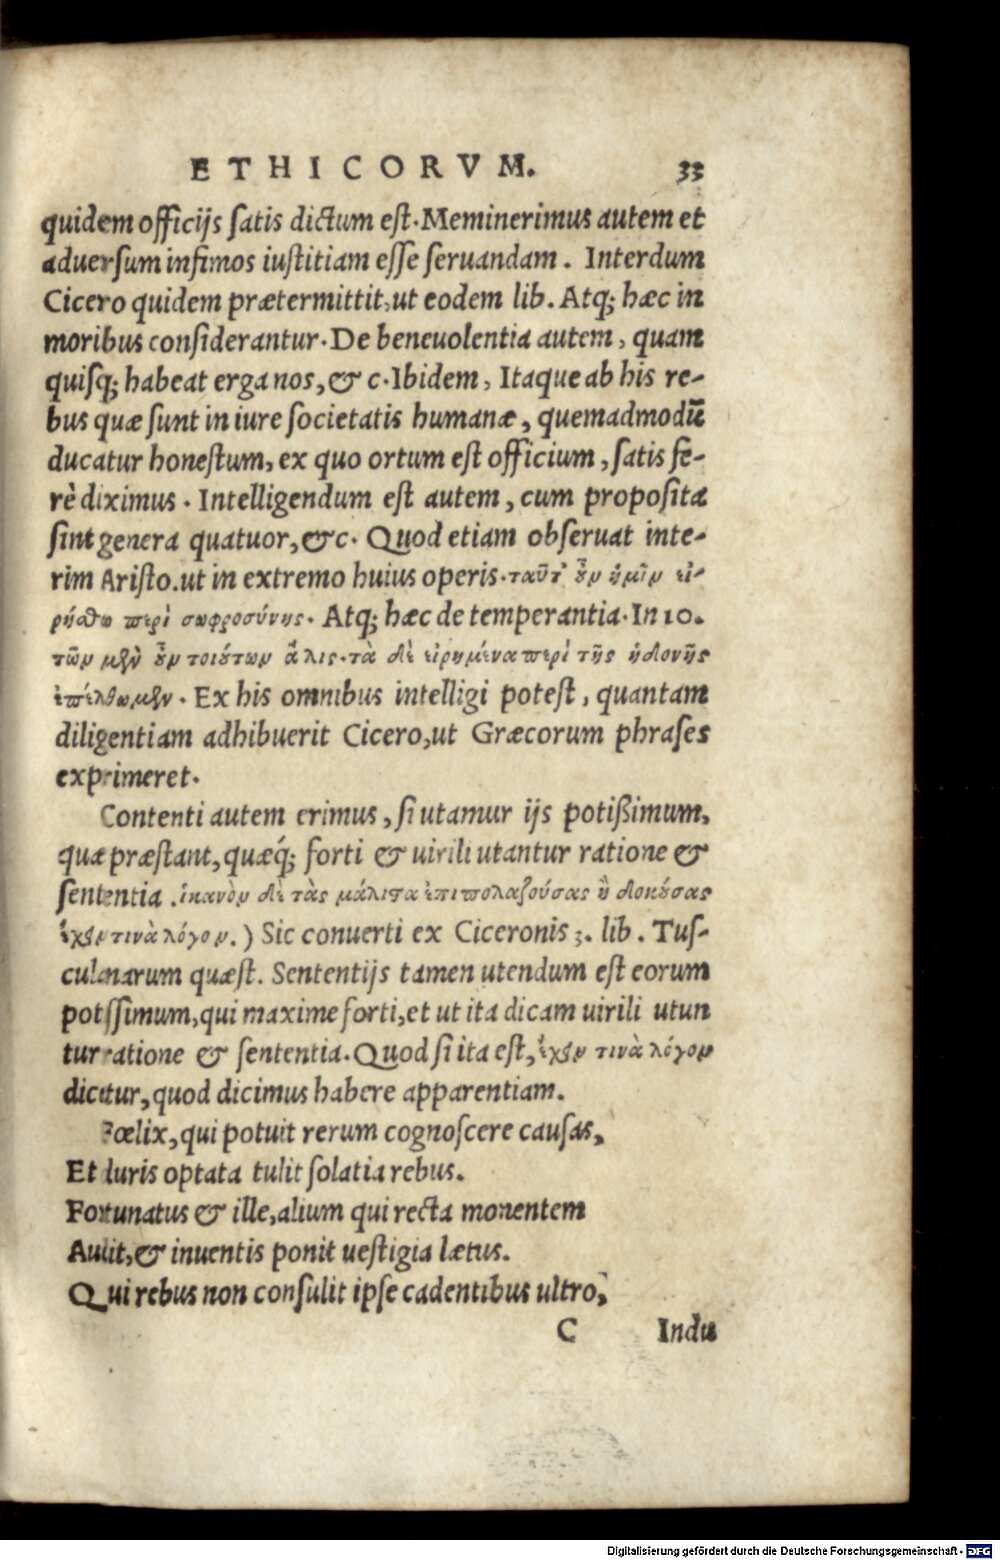 ETHICORVM. 33
quidem officijs satis dictum est. Meminerimus autem et
aduersum infimos iustitiam esse seruandam. Interdum
Cicero quidem prætermittit, ut eodem lib. Atq; hæc in
moribus considerantur. De beneuolentia autem, quam
quisq; habeat erga nos, & c. Ibidem, Itaque ab his re-
bus quæ sunt in iure societatis humanæ, quemadmodū
ducatur honestum, ex quo ortum est officium, satis fe-
rè diximus. Intelligendum est autem, cum proposita
sint genera quatuor, &c. Quod etiam obseruat inte-
rim Aristo. ut in extremo huius operis. ταῦτ' οὖν ἡμῖν εἰ-
ρήσθω περὶ σωφροσύνης. Atq; hæc de temperantia. In 10.
τῶν μὲν οὖν τοιούτων ἅλις. τὰ δὲ εἰρημένα περὶ τῆς ἡδονῆς
ἐπέλθωμεν. Ex his omnibus intelligi potest, quantam
diligentiam adhibuerit Cicero, ut Græcorum phrases
exprimeret.
Contenti autem erimus, si utamur ijs potißimum,
quæ præstant, quæq́; forti & uirili utantur ratione &
sententia. ἱκανὸν δὲ τὰς μάλιστα ἐπιπολαζούσας ἢ δοκούσας
ἔχειν τινὰ λόγον.) Sic conuerti ex Ciceronis 3. lib. Tus-
culanarum quæst. Sententijs tamen utendum est eorum
potissimum, qui maxime forti, et ut ita dicam uirili utun
tur ratione & sententia. Quod si ita est, ἔχειν τινὰ λόγον
dicitur, quod dicimus habere apparentiam.
Fœlix, qui potuit rerum cognoscere causas,
Et duris optata tulit solatia rebus.
Fortunatus & ille, alium qui recta monentem
Audit, & inuentis ponit uestigia lætus.
Qui rebus non consulit ipse cadentibus ultro,
C Indu
Digitalisierung gefördert durch die Deutsche Forschungsgemeinschaft - DFG